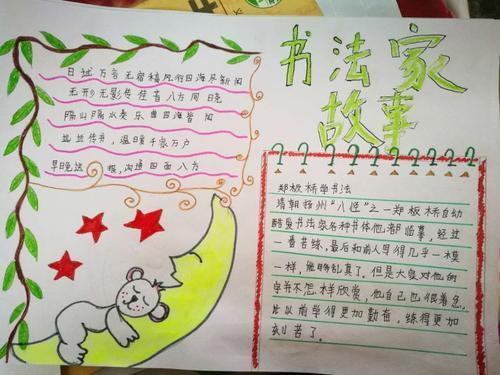 书法家
故事
日试万言无宿稿风行四海尽新闻
无形无影传佳音八方同晓
隔山隔水奏乐曲四海皆闻
传书，温暖千家万户
早晚，沟通四面八方
郑板桥学书法
清朝扬州“八怪”之一郑板桥自幼
酷爱书法家各种书体他都临摹，经过
一番苦练，最后和前人写得几乎一模
一样，能够乱真了。但是大家对他的
字并不怎样欣赏，他自己也很着急，
比以前学得更加勤奋，练得更加
刻苦了。